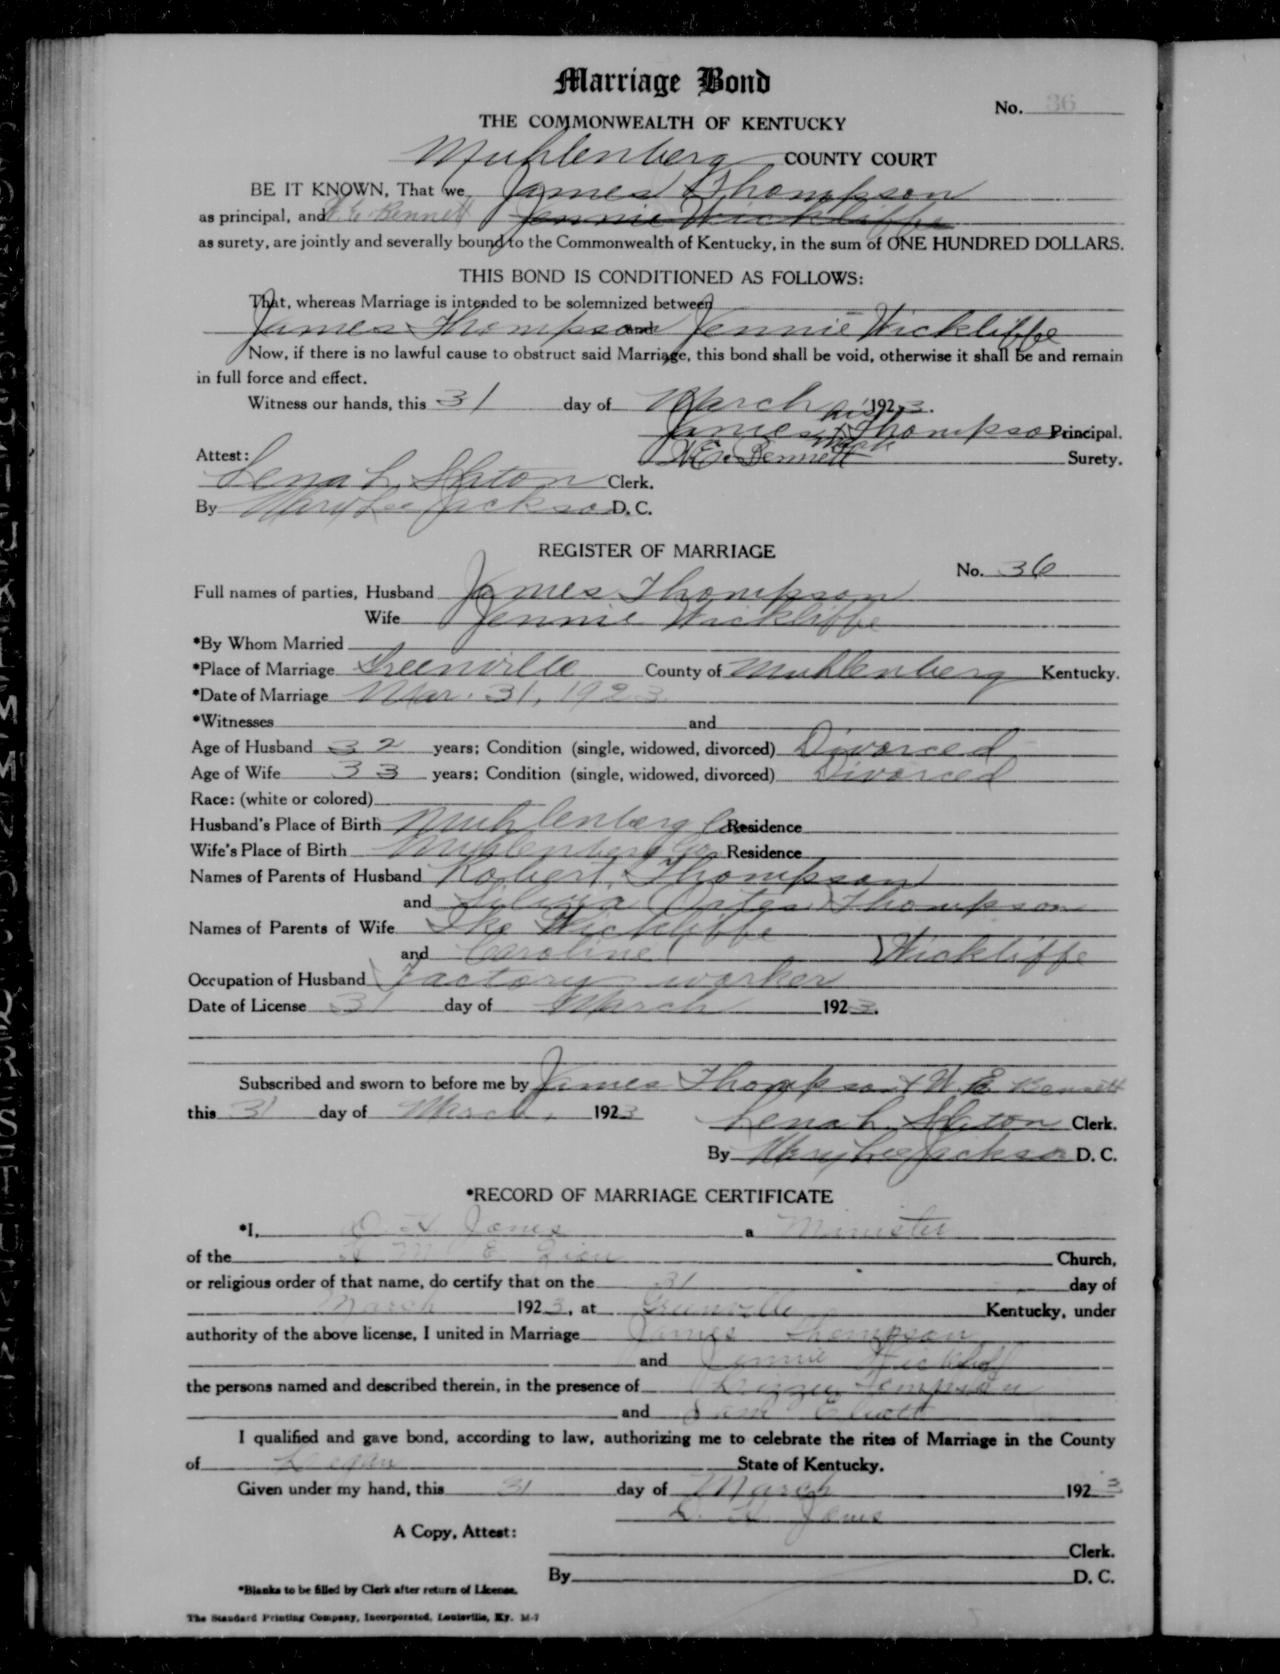 Marriage Bond
No. 36
THE COMMONWEALTH OF KENTUCKY
Muhlenberg COUNTY COURT
BE IT KNOWN, That we James Thompson
as principal, and W. E. Bennett Jennie Wickliffe
as surety, are jointly and severally bound to the Commonwealth of Kentucky, in the sum of ONE HUNDRED DOLLARS.
THIS BOND IS CONDITIONED AS FOLLOWS:
That, whereas Marriage is intended to be solemnized between
James Thompson and Jennie Wickliffe
Now, if there is no lawful cause to obstruct said Marriage, this bond shall be void, otherwise it shall be and remain
in full force and effect.
Witness our hands, this 31 day of March 1923.
his
James x Thompson Principal.
mark
Attest: W. E. Bennett Surety.
Lena L. Slaton Clerk.
By Mary Lee Jackson D. C.
REGISTER OF MARRIAGE
No. 36
Full names of parties, Husband James Thompson
Wife Jennie Wickliffe
*By Whom Married
*Place of Marriage Greenville County of Muhlenberg Kentucky.
*Date of Marriage Mar. 31, 1923
*Witnesses and
Age of Husband 32 years; Condition (single, widowed, divorced) Divorced
Age of Wife 33 years; Condition (single, widowed, divorced) Divorced
Race: (white or colored)
Husband's Place of Birth Muhlenberg Co. Residence
Wife's Place of Birth Muhlenberg Co. Residence
Names of Parents of Husband Robert Thompson
and Thompson
Names of Parents of Wife Ike Wickliffe
and Caroline Wickliffe
Occupation of Husband Factory worker
Date of License 31 day of March 1923.
Subscribed and sworn to before me by James Thompson & W. E. Bennett
this 31 day of March, 1923
Lena L. Slaton Clerk.
By Mary Lee Jackson D. C.
*RECORD OF MARRIAGE CERTIFICATE
*I, D. H. Jones a Minister
of the A M E Zion Church,
or religious order of that name, do certify that on the 31 day of
March 1923, at Greenville Kentucky, under
authority of the above license, I united in Marriage James Thompson
and Jennie
the persons named and described therein, in the presence of
and Sam
I qualified and gave bond, according to law, authorizing me to celebrate the rites of Marriage in the County
of Logan State of Kentucky.
Given under my hand, this 31 day of March 1923
D. H. Jones
A Copy, Attest:
Clerk.
By D. C.
*Blanks to be filled by Clerk after return of License.
The Standard Printing Company, Incorporated, Louisville, Ky. M-7